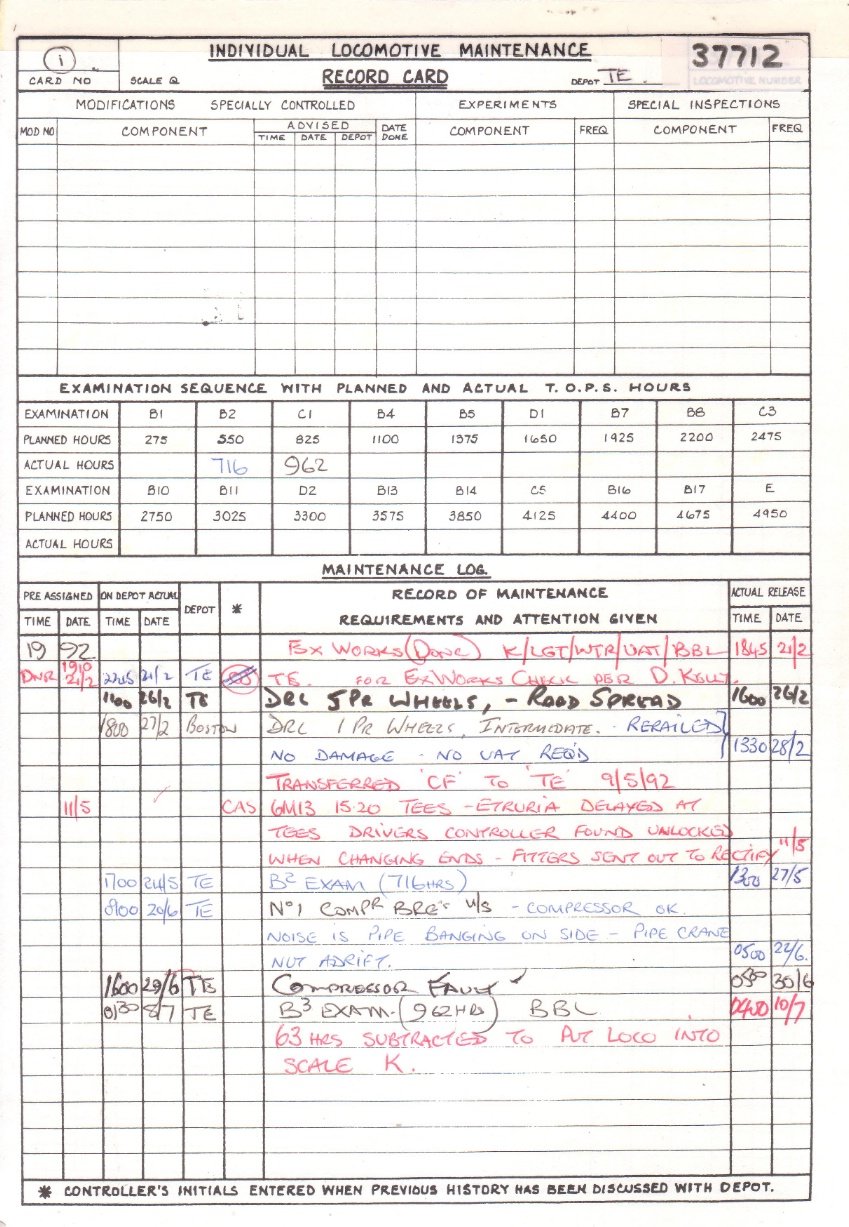 1 INDIVIDUAL LOCOMOTIVE MAINTENANCE 37712
CARD NO SCALE Q RECORD CARD DEPOT TE. LOCOMOTIVE NUMBER
MODIFICATIONS SPECIALLY CONTROLLED EXPERIMENTS SPECIAL INSPECTIONS
MOD NO COMPONENT ADVISED DATE DONE COMPONENT FREQ COMPONENT FREQ
TIME DATE DEPOT
EXAMINATION SEQUENCE WITH PLANNED AND ACTUAL T.O.P.S. HOURS
EXAMINATION B1 B2 C1 B4 B5 D1 B7 B8 C3
PLANNED HOURS 275 550 825 1100 1375 1650 1925 2200 2475
ACTUAL HOURS 716 962
EXAMINATION B10 B11 D2 B13 B14 C5 B16 B17 E
PLANNED HOURS 2750 3025 3300 3575 3850 4125 4400 4675 4950
ACTUAL HOURS
MAINTENANCE LOG
PRE ASSIGNED ON DEPOT ACTUAL DEPOT * RECORD OF MAINTENANCE ACTUAL RELEASE
TIME DATE TIME DATE REQUIREMENTS AND ATTENTION GIVEN TIME DATE
19 92 EX WORKS (DONE) K/LGT/WTR/UAT/BBL 1845 21/2
DNR 1910 21/2 2245 21/2 TE TE. FOR EX WORKS CHECK PER D. KELLY.
1100 26/2 TE DRL 5 PR WHEELS, - ROAD SPREAD 1600 26/2
1800 27/2 BOSTON DRL 1 PR WHEELS, INTERMEDIATE. - RERAILED
NO DAMAGE - NO UAT REQ'D 1330 28/2
TRANSFERRED 'CF' TO 'TE' 9/5/92
11/5 CAS 6M13 15.20 TEES - ETRURIA DELAYED AT
TEES DRIVERS CONTROLLER FOUND UNLOCKED
WHEN CHANGING ENDS - FITTERS SENT OUT TO RECTIFY 11/5
1700 24/5 TE B2 EXAM (716HRS) 1300 27/5
0900 20/6 TE No1 COMPR BRG'S U/S - COMPRESSOR OK.
NOISE IS PIPE BANGING ON SIDE - PIPE CRANE
NUT ADRIFT. 0500 22/6.
1600 29/6 TE COMPRESSOR FAULT 0500 30/6
0130 8/7 TE B3 EXAM. (962HRS) BBL 0400 10/7
63 HRS SUBTRACTED TO PUT LOCO INTO
SCALE K.
* CONTROLLER'S INITIALS ENTERED WHEN PREVIOUS HISTORY HAS BEEN DISCUSSED WITH DEPOT.